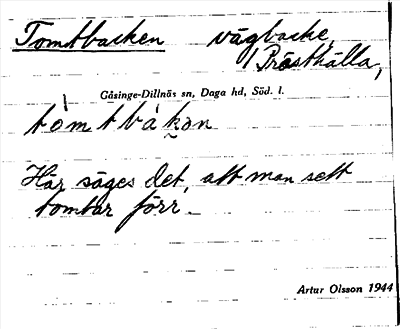 Tomtbacken vägbacke,
Prästhälla,
Gåsinge-Dillnäs sn, Daga hd, Söd. l.
tòmtbàkon
Här säges det, att man sett
tomtar förr.
Artur Olsson 1944